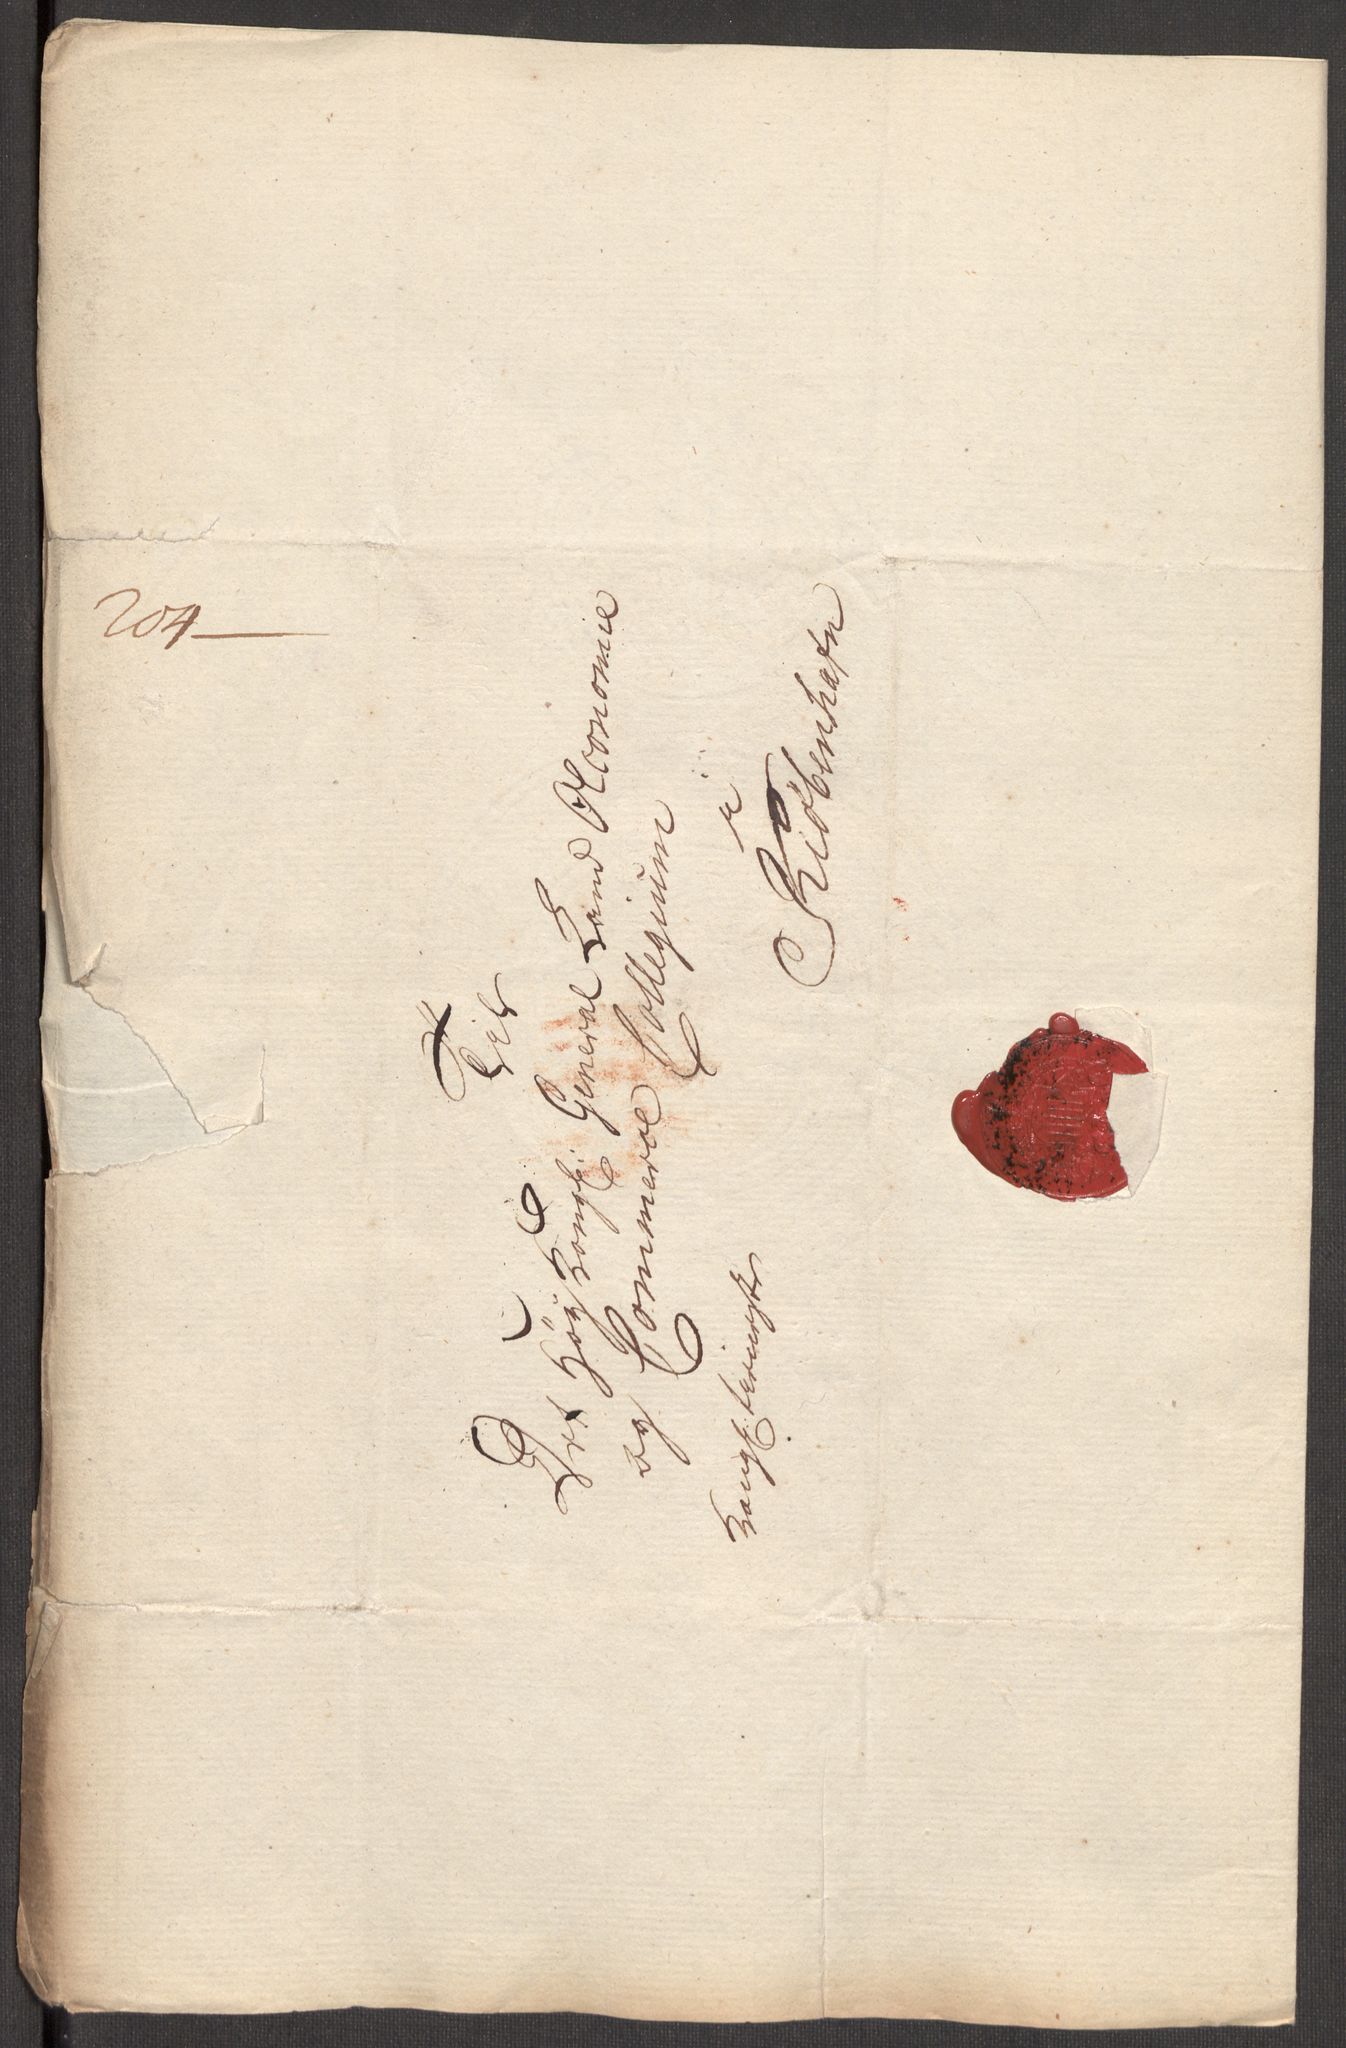 204
Til
Det Höy Kongl: General Land Oeconomie
og Commerce Collegium
i
Kiöbenhafn
Kongl tienneste